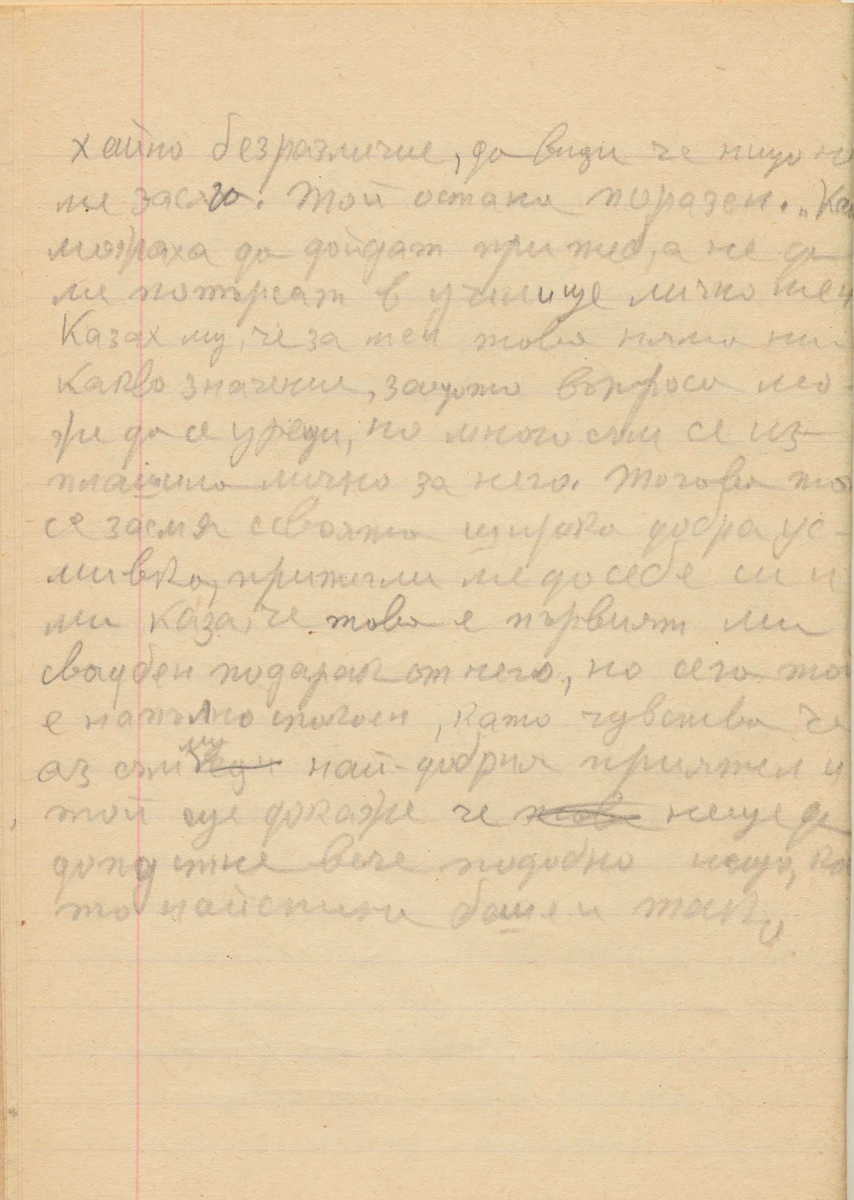 хайно безразличие, да види че нищо не
ме засяга. Той остана поразен. „Как
можаха да дойдат при теб, а не да
ме потърсят в училище лично мен
Казах му, че за мен това няма ни-
какво значение, защото въпроса мо-
же да се уреди, но много съм се из-
плашила лично за него. Тогава той
се засмя със своята широка добра ус-
мивка, притегли ме до себе си и
ми каза, че това е първият ми
сватбен подарък от него, но сега той
е напълно спокоен, като чувства, че
аз съм му най-добрия приятел и
той ще докаже че това неще да
допустне вече подобно нещо, ка
то наистина беше и така